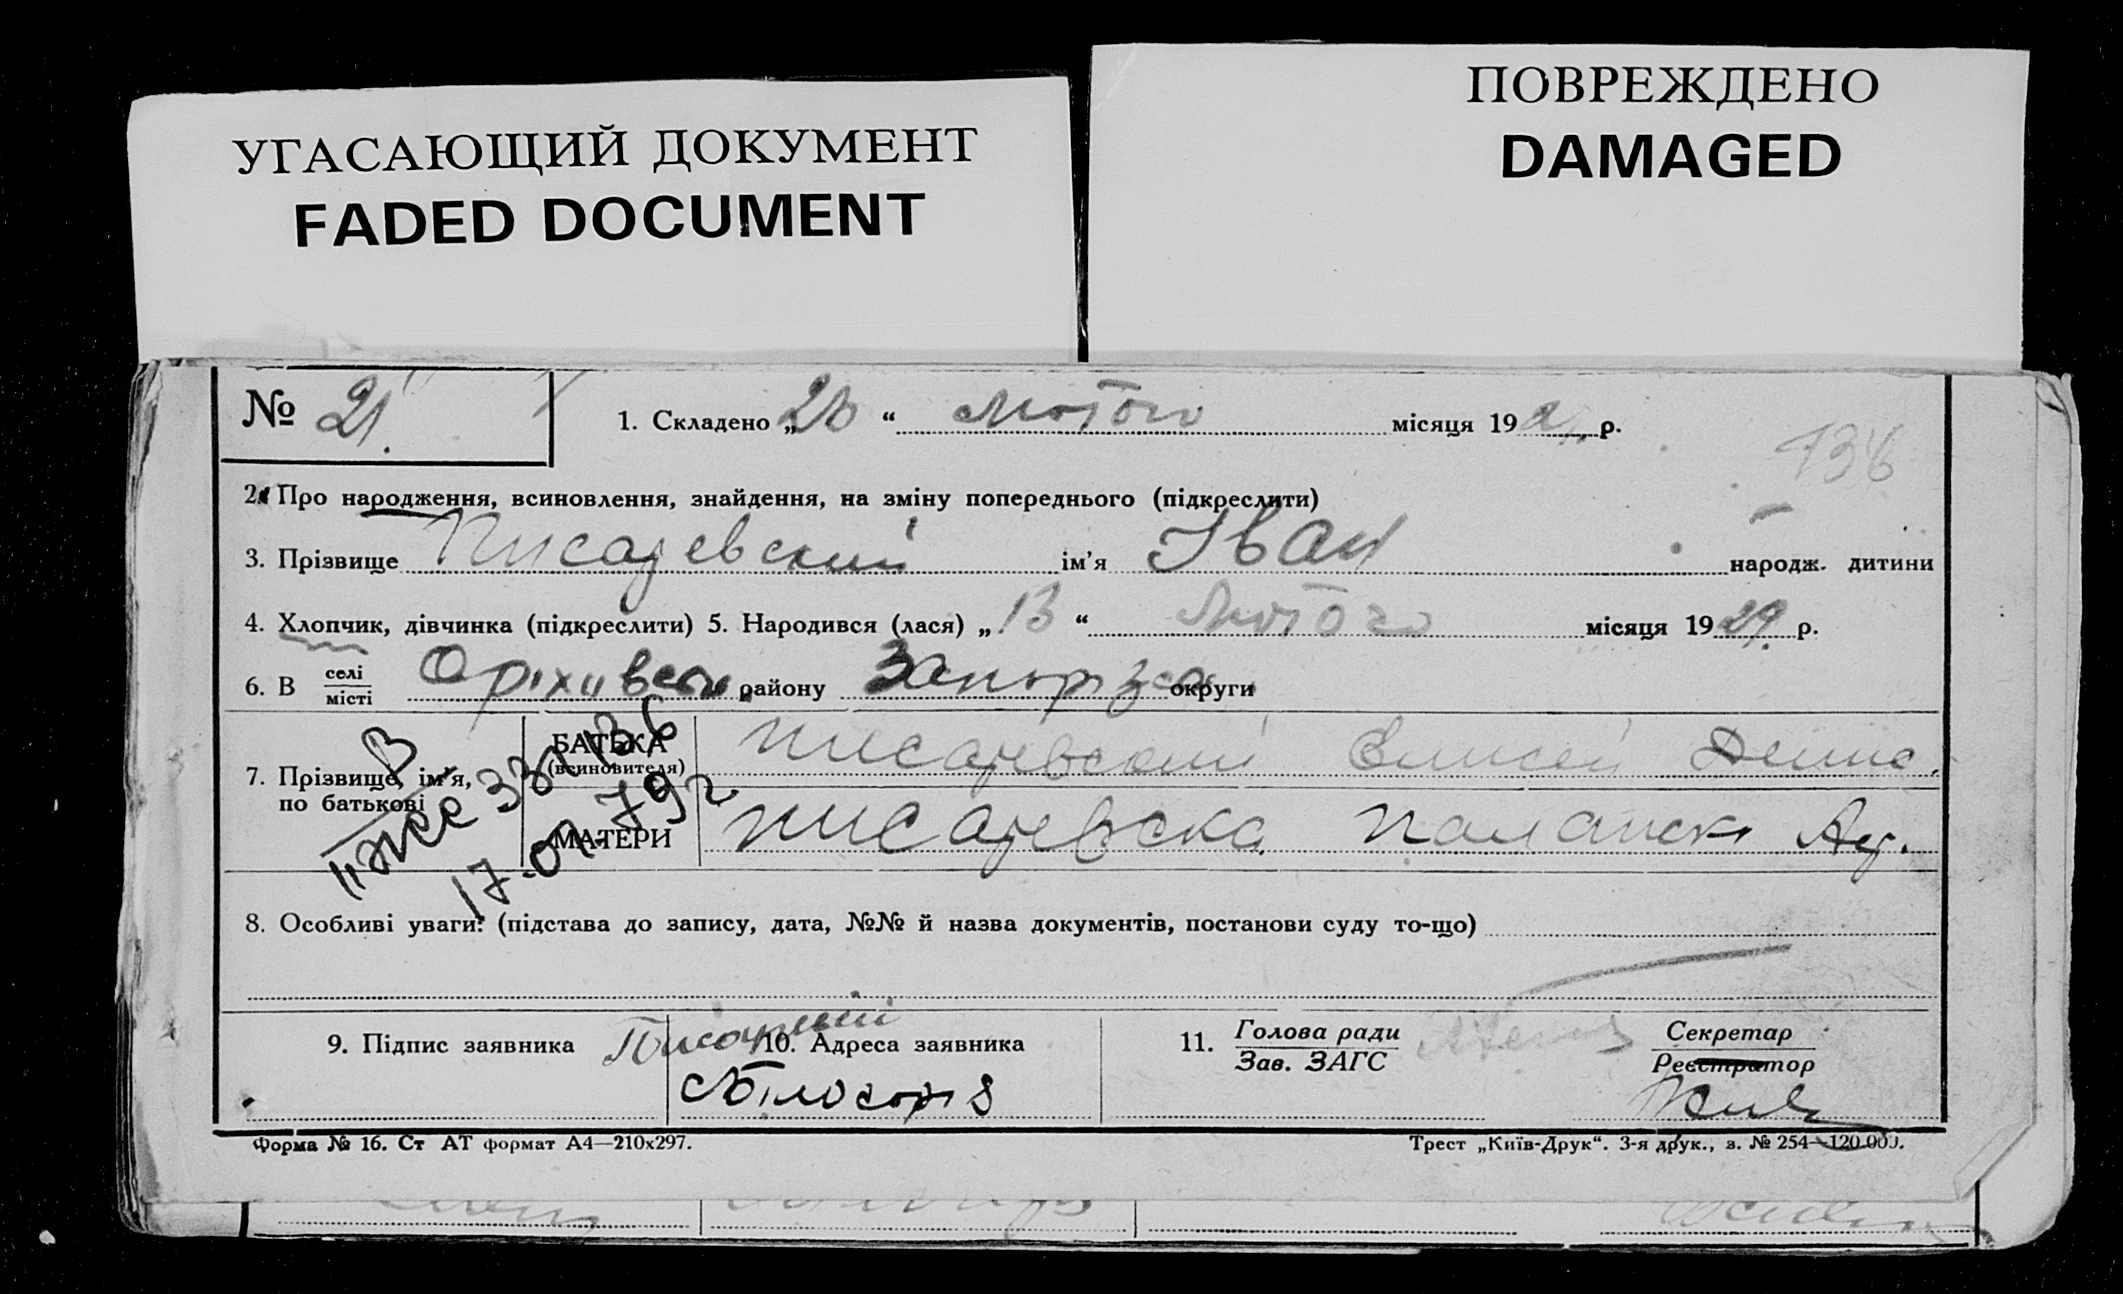 УГАСАЮЩИЙ ДОКУМЕНТ
FADED DOCUMENT
ПОВРЕЖДЕНО
DAMAGED
№ 21.
1. Складено „ “ Лютого місяця 192 р.
136
2. Про народження, всиновлення, знайдення, на зміну попереднього (підкреслити)
3. Прізвище Писаревский ім’я Іван народж. дитини
4. Хлопчик, дівчинка (підкреслити) 5. Народився (лася) „13“ Лютого місяця 1929 р.
6. В селі/місті Оріхівськ. району Запоріз округи
7. Прізвище, ім’я, по батькові
БАТЬКА (всиновителя) Писаревський Елисей Денис.
МАТЕРИ Писаревска
17.07.79 г
8. Особливі уваги: (підстава до запису, дата, №№ й назва документів, постанови суду то-що)
9. Підпис заявника
10. Адреса заявника
Білогоря
11. Голова ради
Зав. ЗАГС
Секретар
Реєстратор
Форма № 16. Ст АТ формат А4—210х297.
Трест „Київ-Друк“. 3-я друк., з. № 254—120.000.